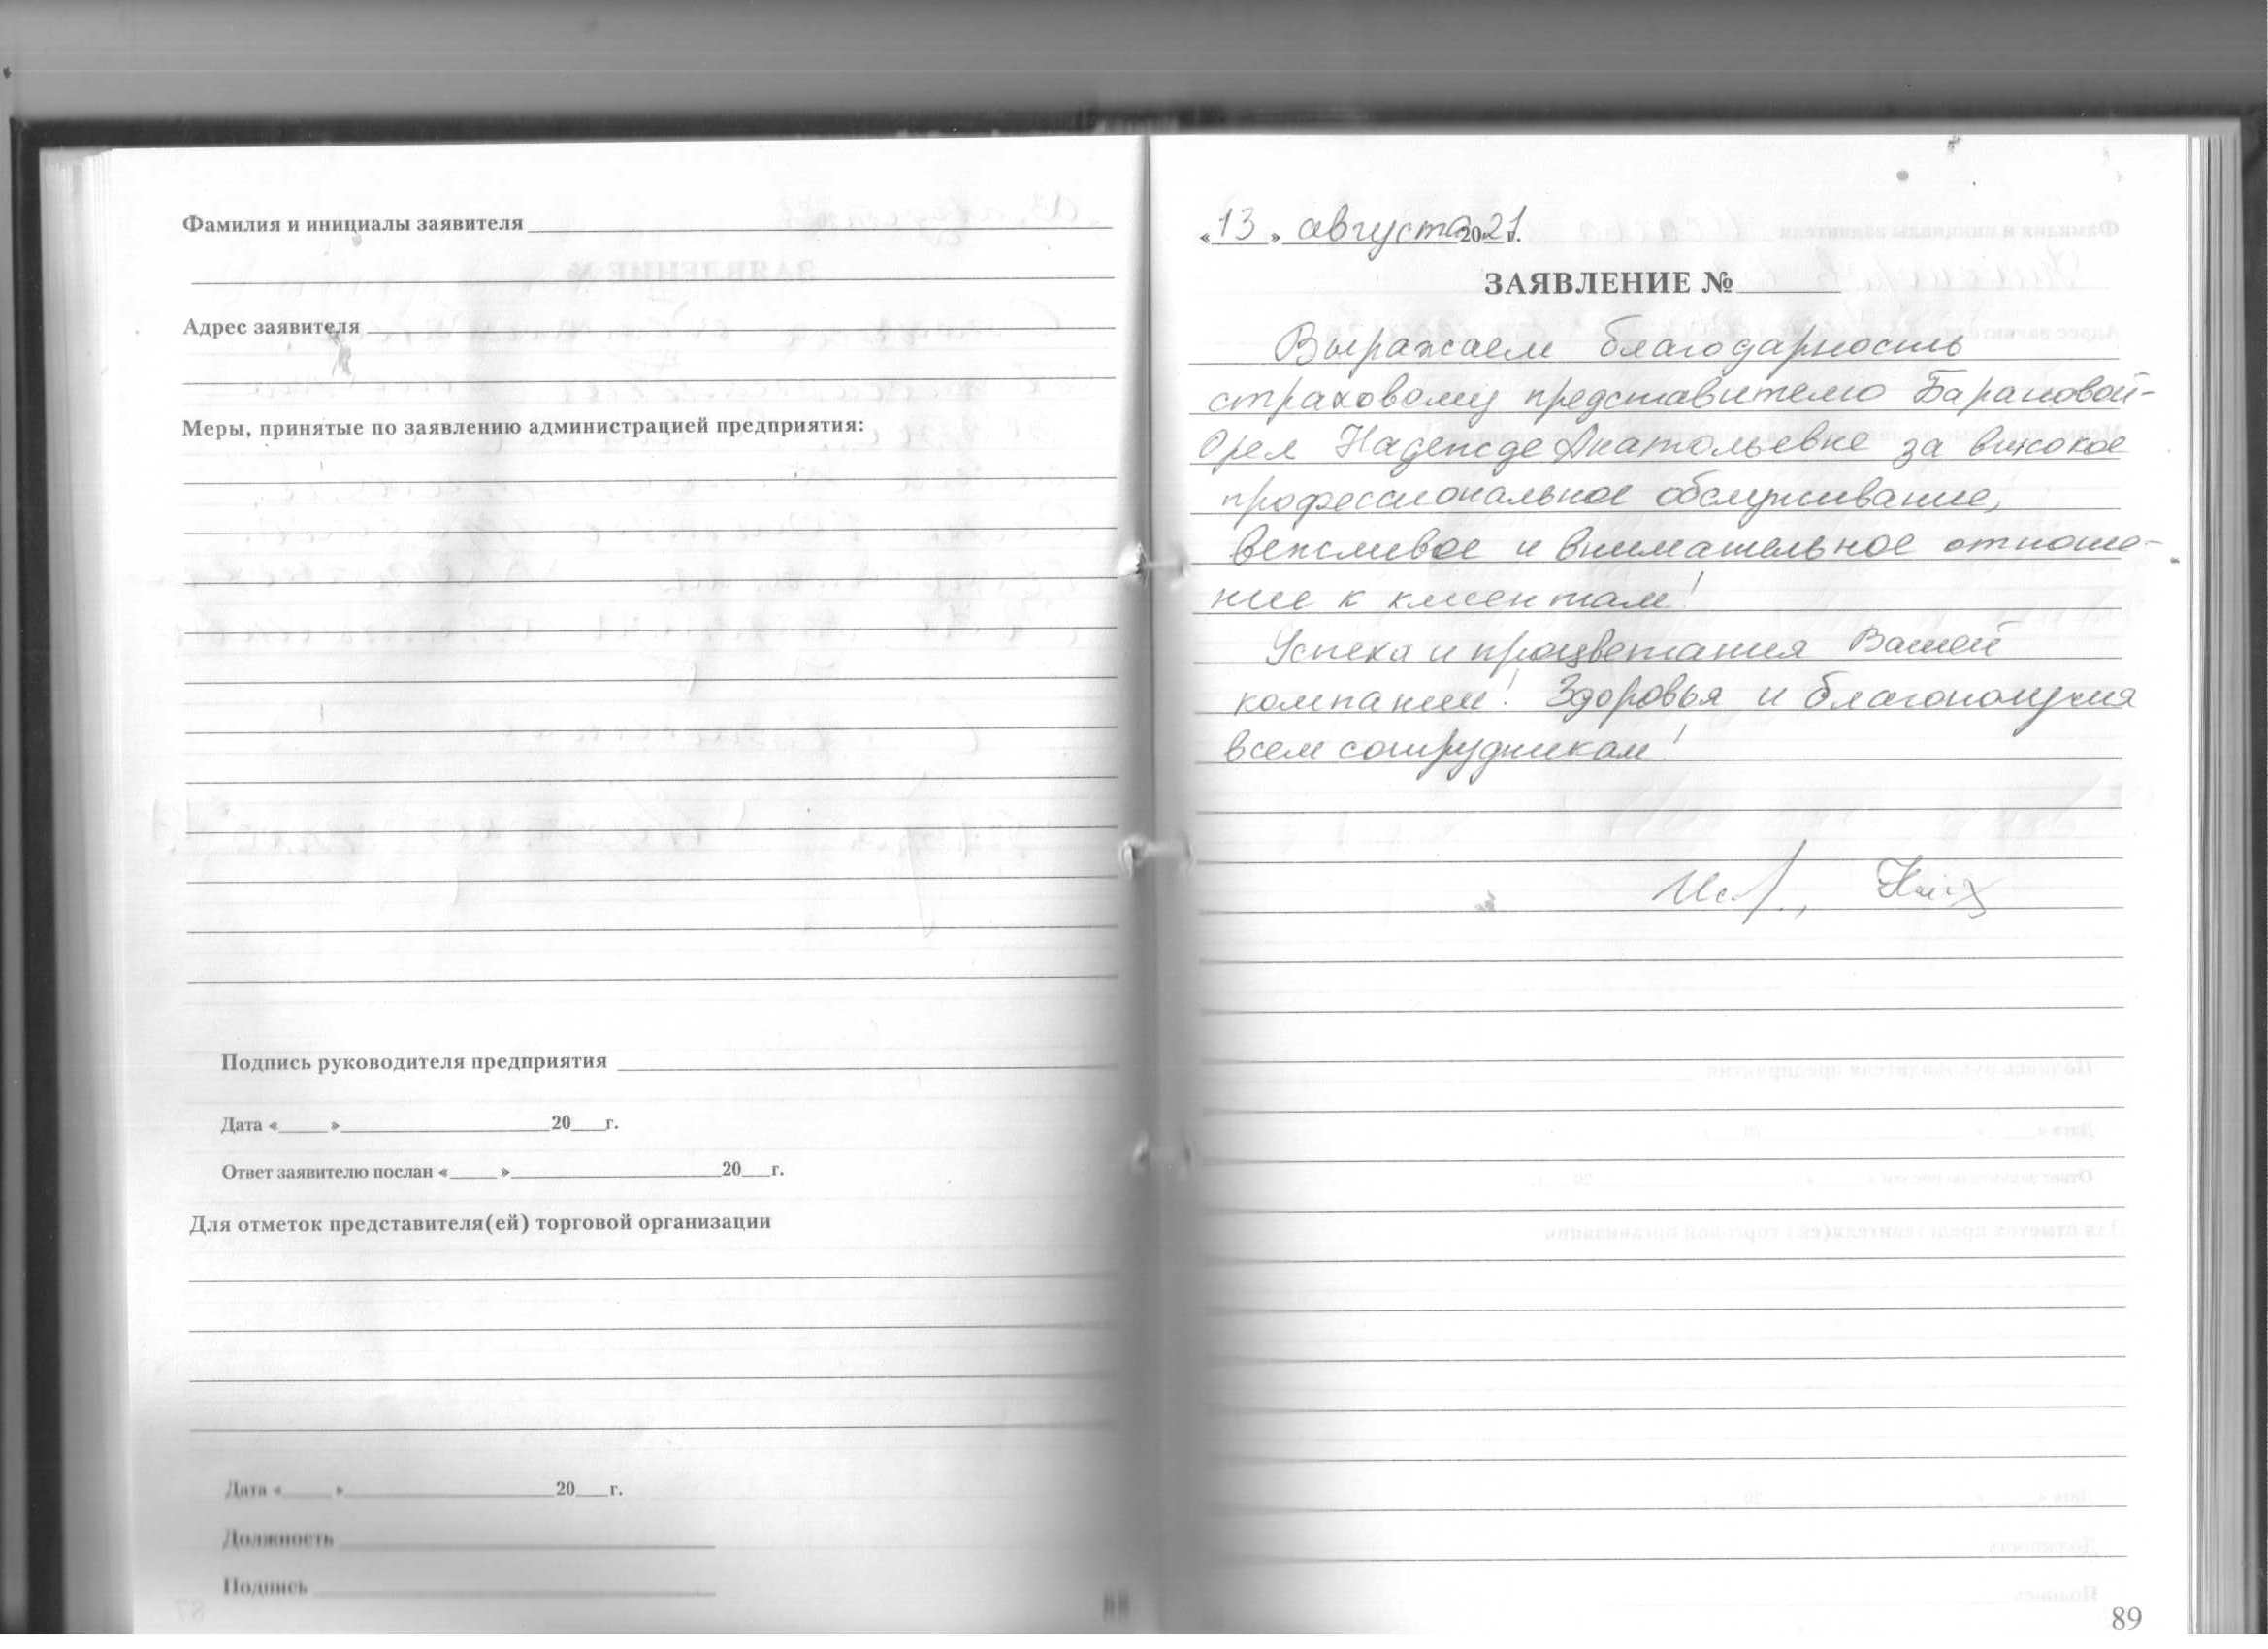 Фамилия и инициалы заявителя
Адрес заявителя
Меры, принятые по заявлению администрацией предприятия:
Подпись руководителя предприятия
Дата «____» ____ 20__г.
Ответ заявителю послан «____» ____ 20__г.
Для отметок представителя(ей) торговой организации
Дата «____» ____ 20__г.
Должность
Подпись
88
«13» августа 2021г.
ЗАЯВЛЕНИЕ №
Выражаем благодарность
страховому представителю Барановой-
Орел Надежде Анатольевне за высокое
профессиональное обслуживание,
вежливое и внимательное отноше-
ние к клиентам!
Успеха и процветания Вашей
компании! Здоровья и благополучия
всем сотрудникам!
89